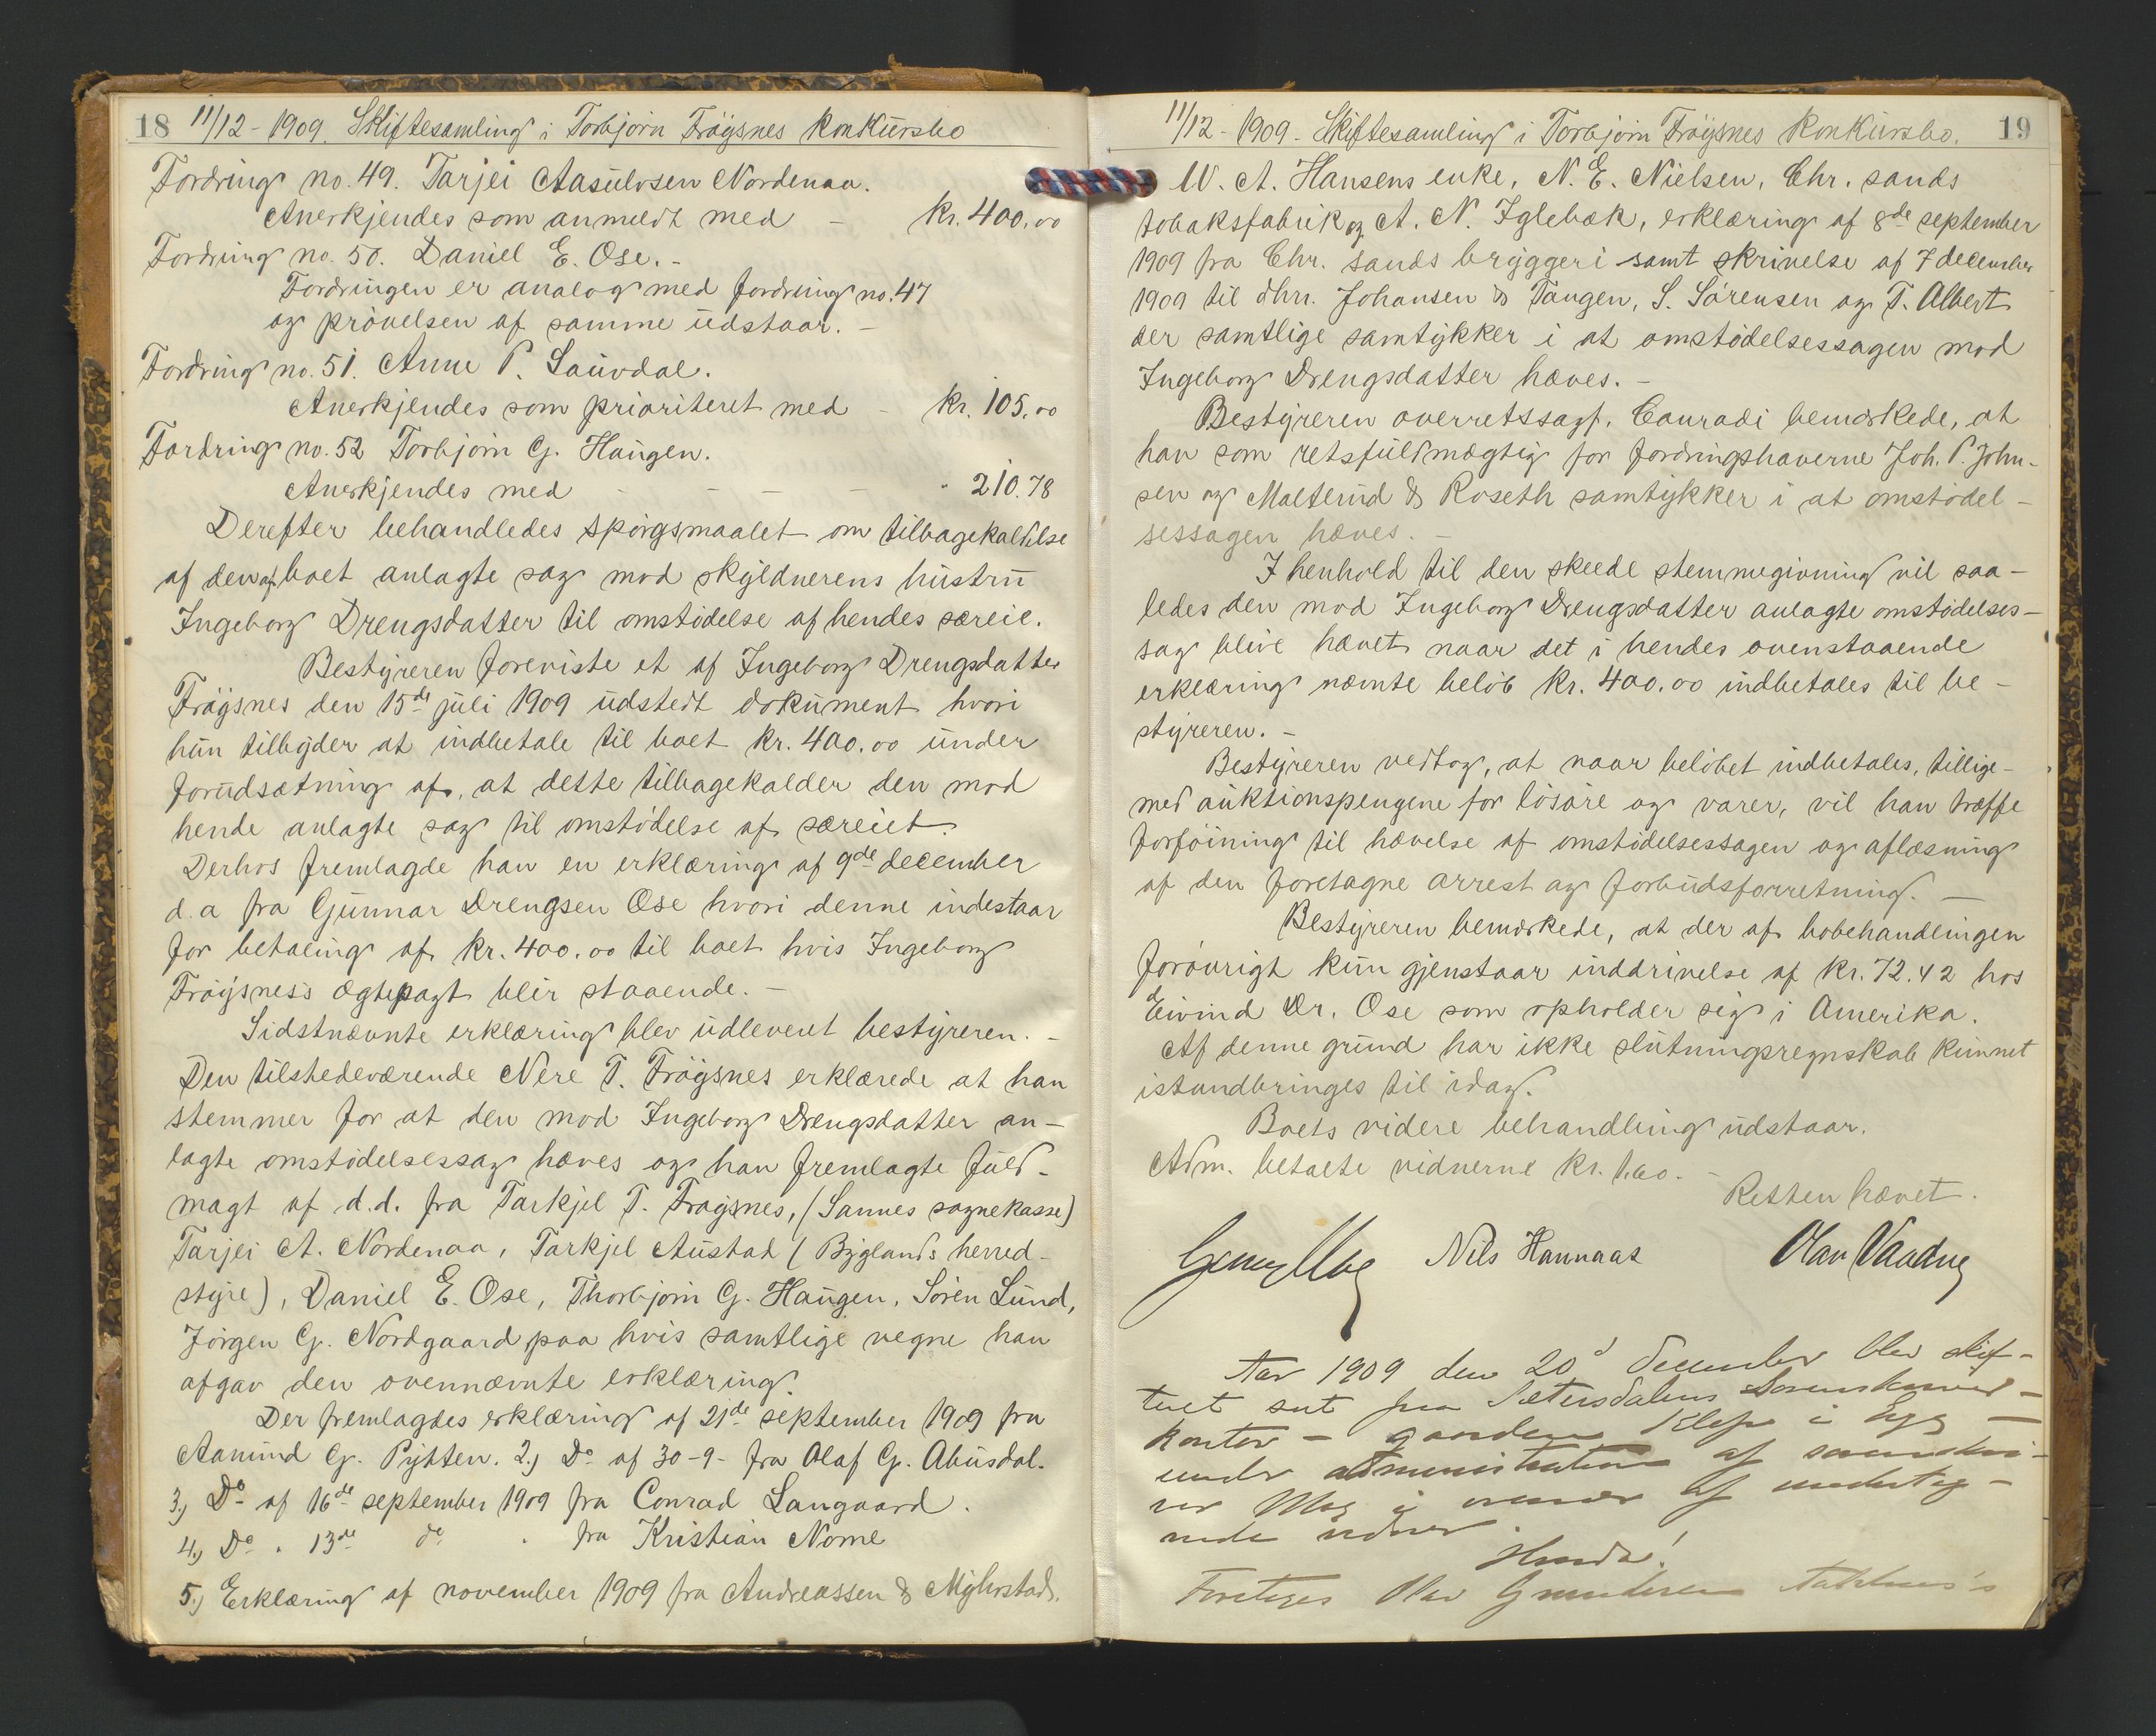 18 11/12 - 1909. Skiftesamling i Torbjörn Fröysnes konkursbo
Fordring no. 49. Tarjei Aasulvsen Nordenaa.
Anerkjendes som anmeldt med - kr. 400.00
Fordring no. 50. Daniel E. Ose. -
Fordringen er analog med fordring no. 47
og prövelsen af samme udstaar. -
Fordring no. 51. Anne P. Laurdal.
Anerkjendes som prioriteret med - kr. 105.00
Fordring no. 52 Torbjörn G. Haugen.
Anerkjendes med - - - - " 210.78
Derefter behandledes spörgsmaalet om tilbagekaldelse
af den af boet anlagte sag mod skyldnerens hustru
Ingeborg Drengsdatter til omstödelse af hendes særeie.
Bestyreren foreviste et af Ingeborg Drengsdatter
Fröysnes den 15de juli 1909 udstedt dokument hvori
hun tilbyder at indbetale til boet kr. 400.00 under
forudsætning af, at dette tilbagekalder den mod
hende anlagte sag til omstödelse af særeiet.
Derhos fremlagde han en erklæring af 9de december
d.a fra Gunnar Drengsen Ose hvori denne indestaar
for betaling af kr. 400.00 til boet hvis Ingeborg
Fröysnes's ægtepagt blir staaende. -
Sidstnævnte erklæring blev udleveret bestyreren. -
Den tilstedeværende Nere T. Fröysnes erklærede at han
stemmer for at den mod Ingeborg Drengsdatter an-
lagte omstödelsessag hæves og han fremlagte fuld-
magt af d.d. fra Tarkjel T. Fröysnes, (Sannes sognekasse)
Tarjei A. Nordenaa, Tarkjel Austad (Byglands herred-
styre), Daniel E. Ose, Thorbjörn G. Haugen, Sören Lund,
Jörgen G. Nordgaard paa hvis samtlige vegne han
afgav den ovennævnte erklæring.
Der fremlagdes erklæring af 21de september 1909 fra
Aanund G. Pytten. 2.) Do af 30-9- fra Olaf G. Abusdal.
3.) Do af 16de september 1909 fra Conrad Langaard.
4.) Do " 13de do " fra Kristian Nome
5.) Erklæring af november 1909 fra Andreassen & Myhrstad.
11/12 - 1909. Skiftesamling i Torbjörn Fröysnes konkursbo. 19
W. A. Hansens enke, N. E. Nielsen, Chr. sands
tobaksfabrik og A. N. Iglebæk, erklæring af 8de september
1909 fra Chr. sands bryggeri samt skrivelse af 7 december
1909 til dhrr. Johansen & Tangen, S. Sörensen og T. Albert
der samtlige samtykker i at omstödelsessagen mod
Ingeborg Drengsdatter hæves. -
Bestyreren overretssagf. Conradi bemærkede, at
han som retsfuldmægtig for fordringshaverne Joh. P. John-
sen og Malterud & Roseth samtykker i at omstödel-
sessagen hæves. -
I henhold til den skeede stemmegivning vil saa-
ledes den mod Ingeborg Drengsdatter anlagte omstödelses-
sag blive hævet naar det i hendes ovenstaaende
erklæring nævnte belöb kr. 400.00 indbetales til be-
styreren. -
Bestyreren vedtog, at naar belöbet indbetales, tillige-
med auktionspengene for lösöre og varer, vil han træffe
forföining til hævelse af omstödelsessagen og aflæsning
af den foretagne arrest og forbudsforretning. -
Bestyreren bemærkede, at der af bobehandlingen
forövrigt kun gjenstaar inddrivelse af kr. 72.42 hos
Eivind Dr. Ose som opholder sig i Amerika.
Af denne grund har ikke slutningsregnskab kunnet
istandbringes til idag.
Boets videre behandling udstaar.
Adm. betalte vidnerne kr. 1.60. -
Retten hævet.
Nils Hannaas Olav Vaadne
Aar 1909 den 20d December blev skif-
teret sat paa Sætersdalens Sorenskriver-
kontor - gaarden Klep i Evje -
under administration af sorenskri-
ver Moe i overvær af underteg-
nede vidner.
Hvorda!
Foretoges Olav Gunderson